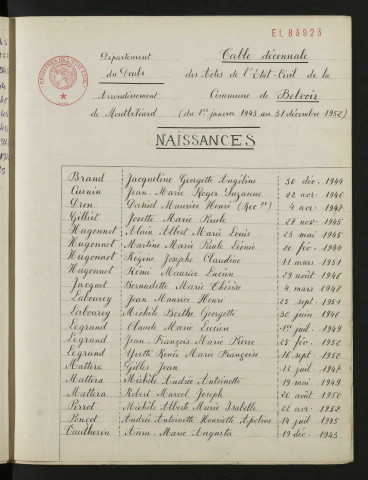 EL 83923
Département
du Doubs
Arrondissement
de Montbéliard
Table décennale
des Actes de l'Etat-Civil de la
Commune de Belvoir
(du 1er janvier 1943 au 31 décembre 1952)
NAISSANCES
Brand Jacqueline Georgette Angéline 30 déc. 1944
Cuenin Jean-Marie Roger Suzanne 22 avr 1946
Dren Daniel Maurice Henri 4 avr 1947
Gilliot Josette Marie Paule 27 nov. 1945
Hugonnot Alain Albert Marie Louis 23 mai 1945
Hugonnot Martine Marie Paule 20 fév. 1944
Hugonnot Régine Josephe Claudine 11 mars 1951
Hugonnot Rémi Maurice Lucien 29 août 1946
Jacquet Bernadette Marie Thérèse 4 mars 1948
Labourey Jean Maurice Henri 25 sept 1951
Labourey Michèle Berthe Georgette 30 juin 1946
Legrand Claude Marie Lucien 1er juil. 1949
Legrand Jean-François Marie Pierre 25 fév. 1952
Legrand Yvette Renée Marie Françoise 16 sept 1950
Mattera Gilles Jean 12 juil 1947
Mattera Michèle Andrée Antoinette 19 mai 1949
Mattera Robert Marcel Joseph 20 août 1950
Perrot Michèle Albert Marie Isabelle 22 avr. 1952
Pouçot Andrée Antoinette Henriette Apoline 14 juil 1945
Vautherin Anne-Marie Augusta 19 déc. 1943